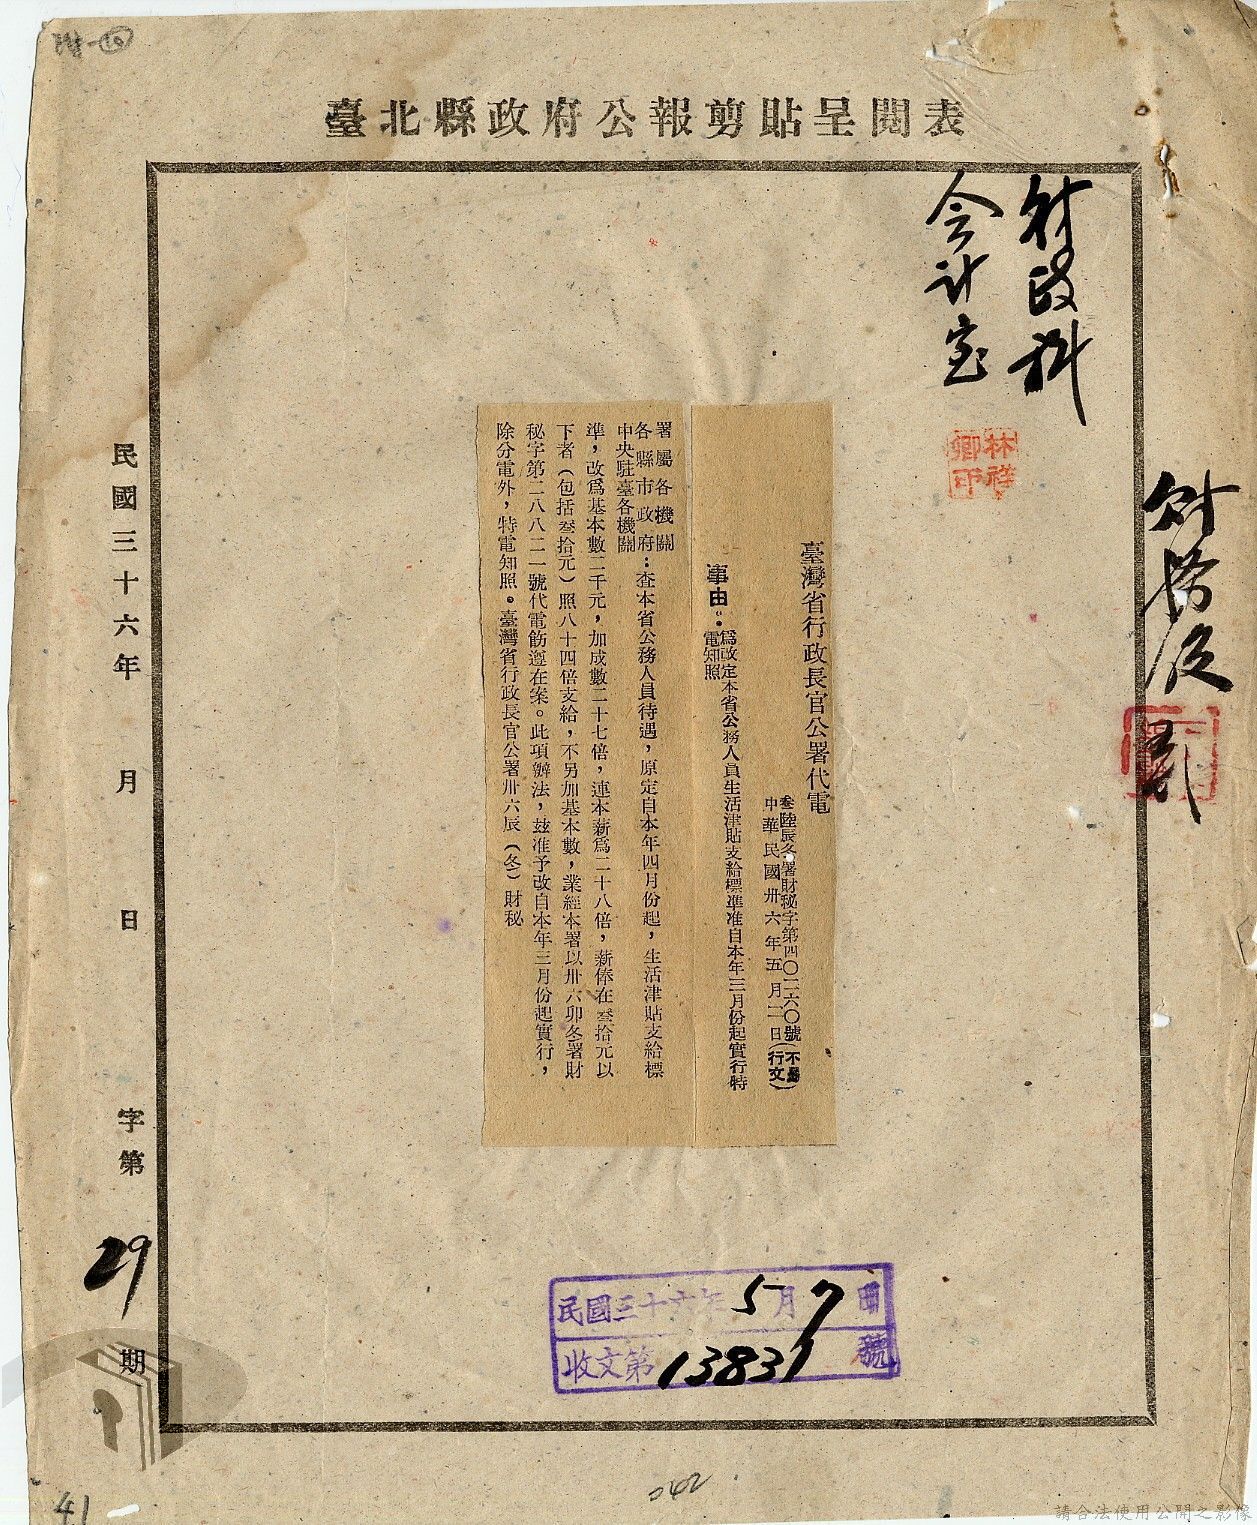 臺北縣政府公報剪貼呈閱表
財政科
会計室
林祥
卿印
財務股
臺灣省行政長官公署代電
叁陸辰冬署財秘字第四〇二六〇號(不屬
中華民國卅六年五月二日 行文)
事由：為改定本省公務人員生活津貼支給標準准自本年三月份起實行特
電知照
署屬各機關
各縣市政府：查本省公務人員待遇，原定自本年四月份起，生活津貼支給標
中央駐臺各機關
準，改爲基本數二千元，加成數二十七倍，連本薪爲二十八倍，薪俸在叁拾元以
下者（包括叁拾元）照八十四倍支給，不另加基本數，業經本署以卅六卯冬署財
秘字第二八八二一號代電飭遵在案。此項辦法，玆准予改自本年三月份起實行，
除分電外，特電知照。臺灣省行政長官公署卅六辰（冬）財秘
民國三十六年 月 日 字第29期
民國三十六年5月7日
收文第13831號
042
41
請合法使用公開之影像